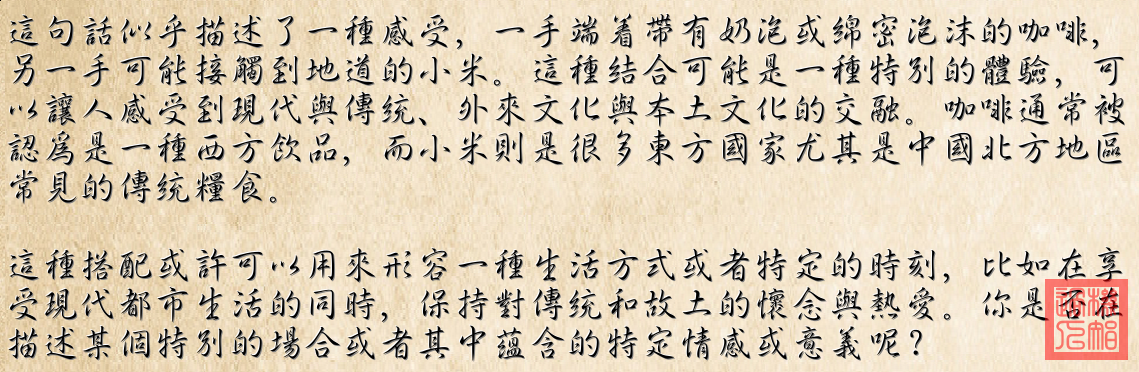 這句話似乎描述了一種感受，一手端着帶有奶泡或綿密泡沫的咖啡，
另一手可能接觸到地道的小米。這種結合可能是一種特別的體驗，可
以讓人感受到現代與傳統、外來文化與本土文化的交融。咖啡通常被
認爲是一種西方飲品，而小米則是很多東方國家尤其是中國北方地區
常見的傳統糧食。
這種搭配或許可以用來形容一種生活方式或者特定的時刻，比如在享
受現代都市生活的同時，保持對傳統和故土的懷念與熱愛。你是否在
描述某個特別的場合或者其中蘊含的特定情感或意義呢？